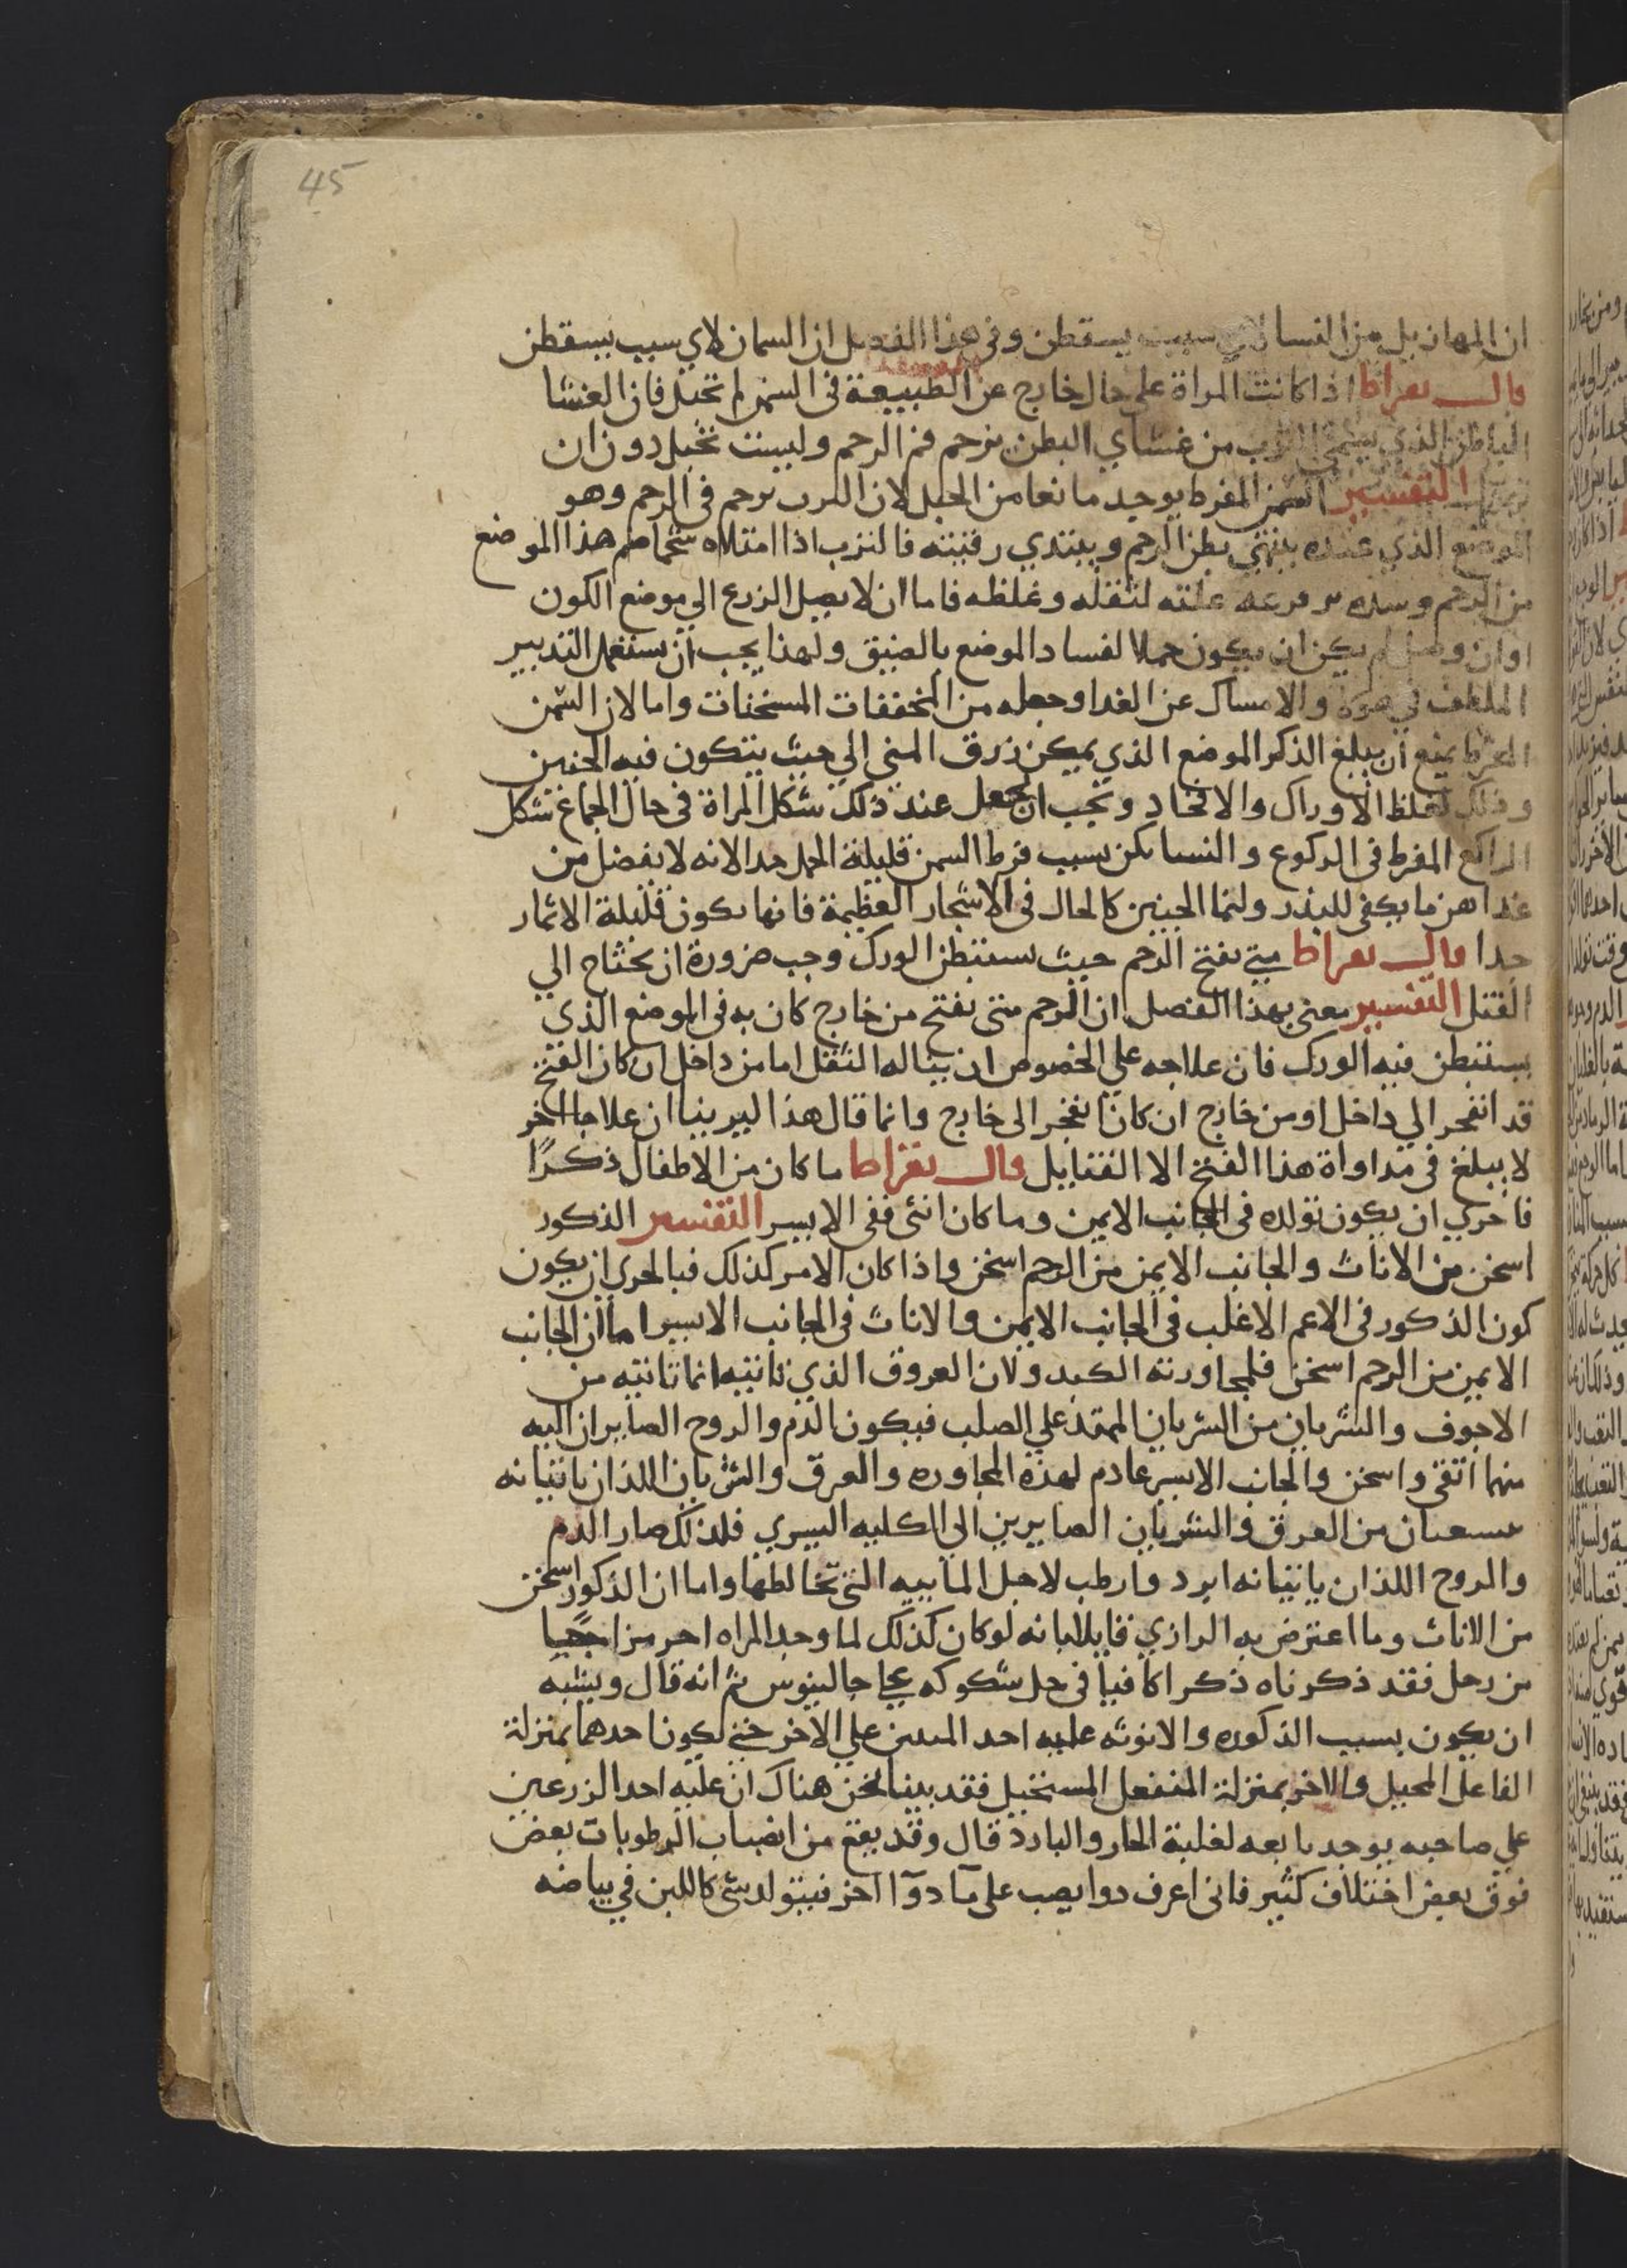 45
ان المهازيل من النسا لاي سبب يسقطن وفي هذا الفصل ان السمان لاي سبب يسقطن
قال بقراط اذا كانت المراة على حال خارج عن الطبيعة في السمن لم تحبل فان الغشا
الباطن الذي يسمى الثرب من غشاي البطن يزحم فم الرحم وليست تحبل دون ان
تهزل التفسير السمن المفرط يوجد مانعا من الحبل لان الثرب يزحم فم الرحم وهو
الموضع الذي عنده ينتهي بطن الرحم ويبتدي رقبته فالثرب اذا امتلاه شحما ضم هذا الموضع
من الرحم وسده لثقله وغلظه فاما ان لا يصل الزرع الي موضع الكون
او ان وصل لم يكن ان يكون حملا لفساد الموضع بالضيق ولهذا يجب ان يستعمل التدبير
الملطف في هولا والامساك عن الغدا وجعله من المخففات المسخنات واما لان السمن
المفرط يمنع ان يبلغ الذكر الموضع الذي يمكن زرق المني الي حيث يتكون فيه الجنين
وذلك لغلظ الاوراك والافخاد وتجب ان يجعل عند ذلك شكل المراة في حال الجماع شكل
الراكع المفرط في الركوع والنسا يكن بسبب فرط السمن قليلة الحمل جدا لانه لا يفضل من
غداهن ما يكفي للبذر ولنما الجنين كالحال في الاشجار العظيمة فانها يكون قليلة الاثمار
جدا قال بقراط متي تقتح الرحم حيث يستبطن الورك وجب ضرورة ان يحتاج الي
الفتل التفسير معني بهذا الفصل ان الرحم متى تقتح من خارج كان به في الموضع الذي
يستبطن فيه الورك فان علاجه علي الخصوص ان يناله الثقل اما من داخل ان كان القتح
قد انفجر الي داخل او من خارج ان كان انفجر الى خارج وانما قال هذا ليرينا ان علاجا اخر
لا يبلغ في مداواة هذا القتح الا الفتايل قال بقراط ما كان من الاطفال ذكرًا
فاحري ان يكون تولده في الجانب الايمن وما كان انثي ففي الايسر التفسير الذكور
اسخن من الاناث والجانب الايمن من الرحم اسخن واذا كان الامر كذلك فبالحري ان يكون
كون الذكور في الاعم الاغلب في الجانب الايمن والاناث في الجانب الايسر اما ان الجانب
الايمن من الرحم اسخن فلمجاورته الكبد ولان العروق الذي تاتيه انما تاتيه من
الاجوف والشريان من الشريان الممتد علي الصلب فيكون الدم والروح الصايران اليه
منهما انقى واسخن والجانب الايسر عادم لهذه المجاوره والعرق والشريان اللذان ياتيانه
يتشعبان من العرق والشريان الصايرين الى الكليه اليسري فلذلك صار الدم
والروح اللذان ياتيانه ابرد وارطب لاجل المابيه التي تخالطها واما ان الذكور اسخن
من الاناث وما اعترض به الرازي قايلا بانه لو كان كذلك لما وجد المراه احر مزاجًا
من رجل فقد ذكرناه ذكرا كافيا في حل شكوكه عليا جالينوس ثم انه قال ويشبه
ان يكون بسبب الذكوره والانوثه عليه احد المنيين علي الاخر حتي يكون احدهما بمنزلة
الفاعل المحيل والاخر بمنزلة المنفعل المستحيل فقد بينا نحن هناك ان عليه احد الزرعين
علي صاحبه يوجد تابعه لغلبة الحار والبارد قال وقد يقع من انصباب الرطوبات بعض
فوق بعض اختلاف كثير فاني اعرف دوا يصب على مآ دوآ اخر فيتولد شي كاللبن في بياضه